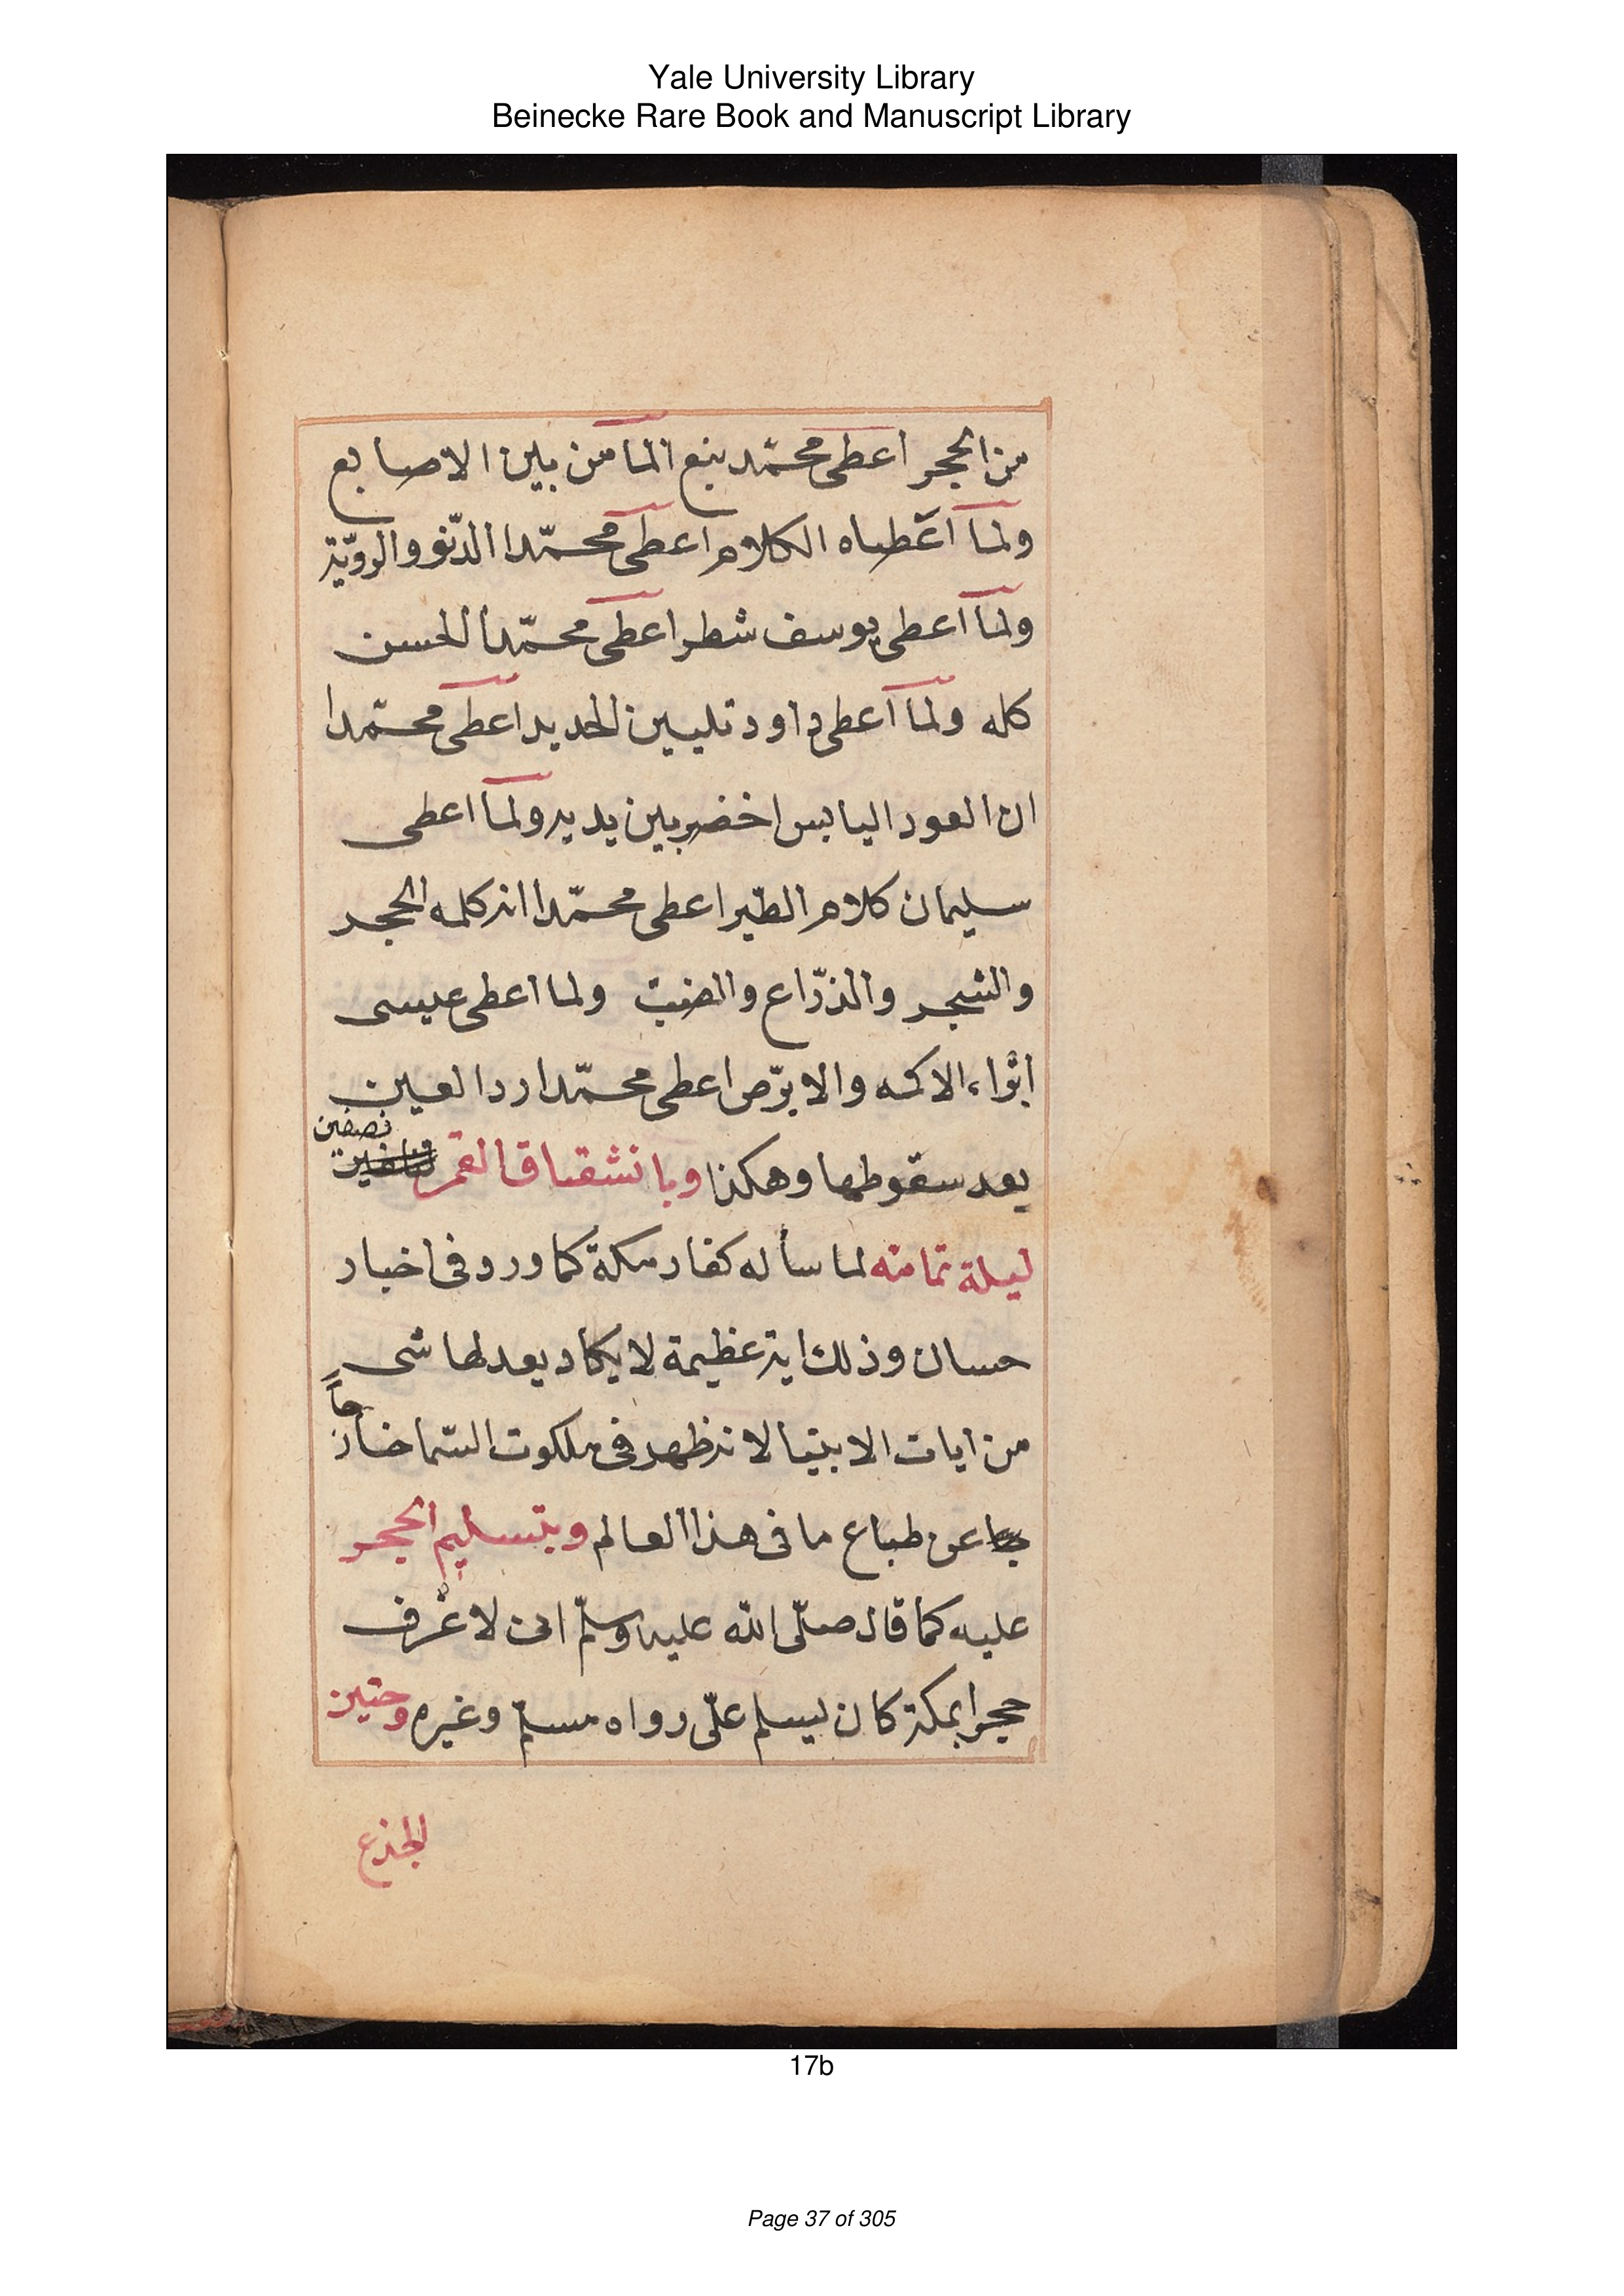 Yale University Library
Beinecke Rare Book and Manuscript Library
من الحجر اعطى محمّد بنبع الما من بين الاصابع
ولما اعطياه الكلام اعطى محمّدا الدّنو والروّية
ولما اعطى يوسف شطر اعطى محمّدا الحسن
كله ولما اعطى داود تليين الحديد اعطى محمّدا
ان العود اليابس اخضر بين يديه ولما اعطى
سليمان كلام الطّير اعطى محمّدا انه كلمه الحجر
والشجر والذرّاع والضبّ ولما اعطى عيسى
ابْراء الاكمه والابرّص اعطى محمّدا ردا لعين
بعد سقوطها وهكذا وبانشقاق القمر نصفين
ليلة تمامته لما سأله كفار مكة كما ورد فى اخبار
حسان وذلك اية عظيمة لا يكاد يعدلها شىٍ
من ايات الانبيا لانه ظهر فى ملكوت السّما خارجاً
عن طباع ما فى هذا العالم وبتسليم الحجر
عليه كما قال صلّى الله عليه وسلّم انى لاعْرف
حجرا بمكة كان يسلم علىّ رواه مسلم وغيره وحنين
الجذع
17b
Page 37 of 305